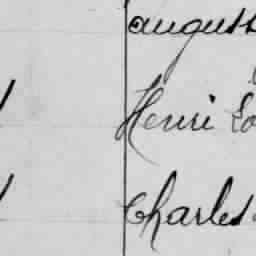 august
Henri Lo
Charles